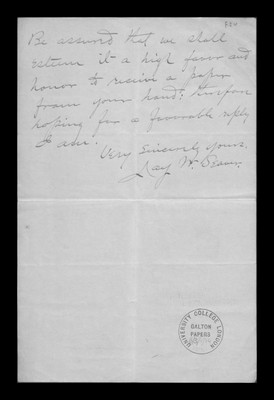 Be assured that we shall
esteem it a high favor and
honor to receive a paper
from your hand; therefore
hoping for a favorable reply
I am.
Very Sincerely yours,
Ray W.
UNIVERSITY COLLEGE LONDON
GALTON
PAPERS